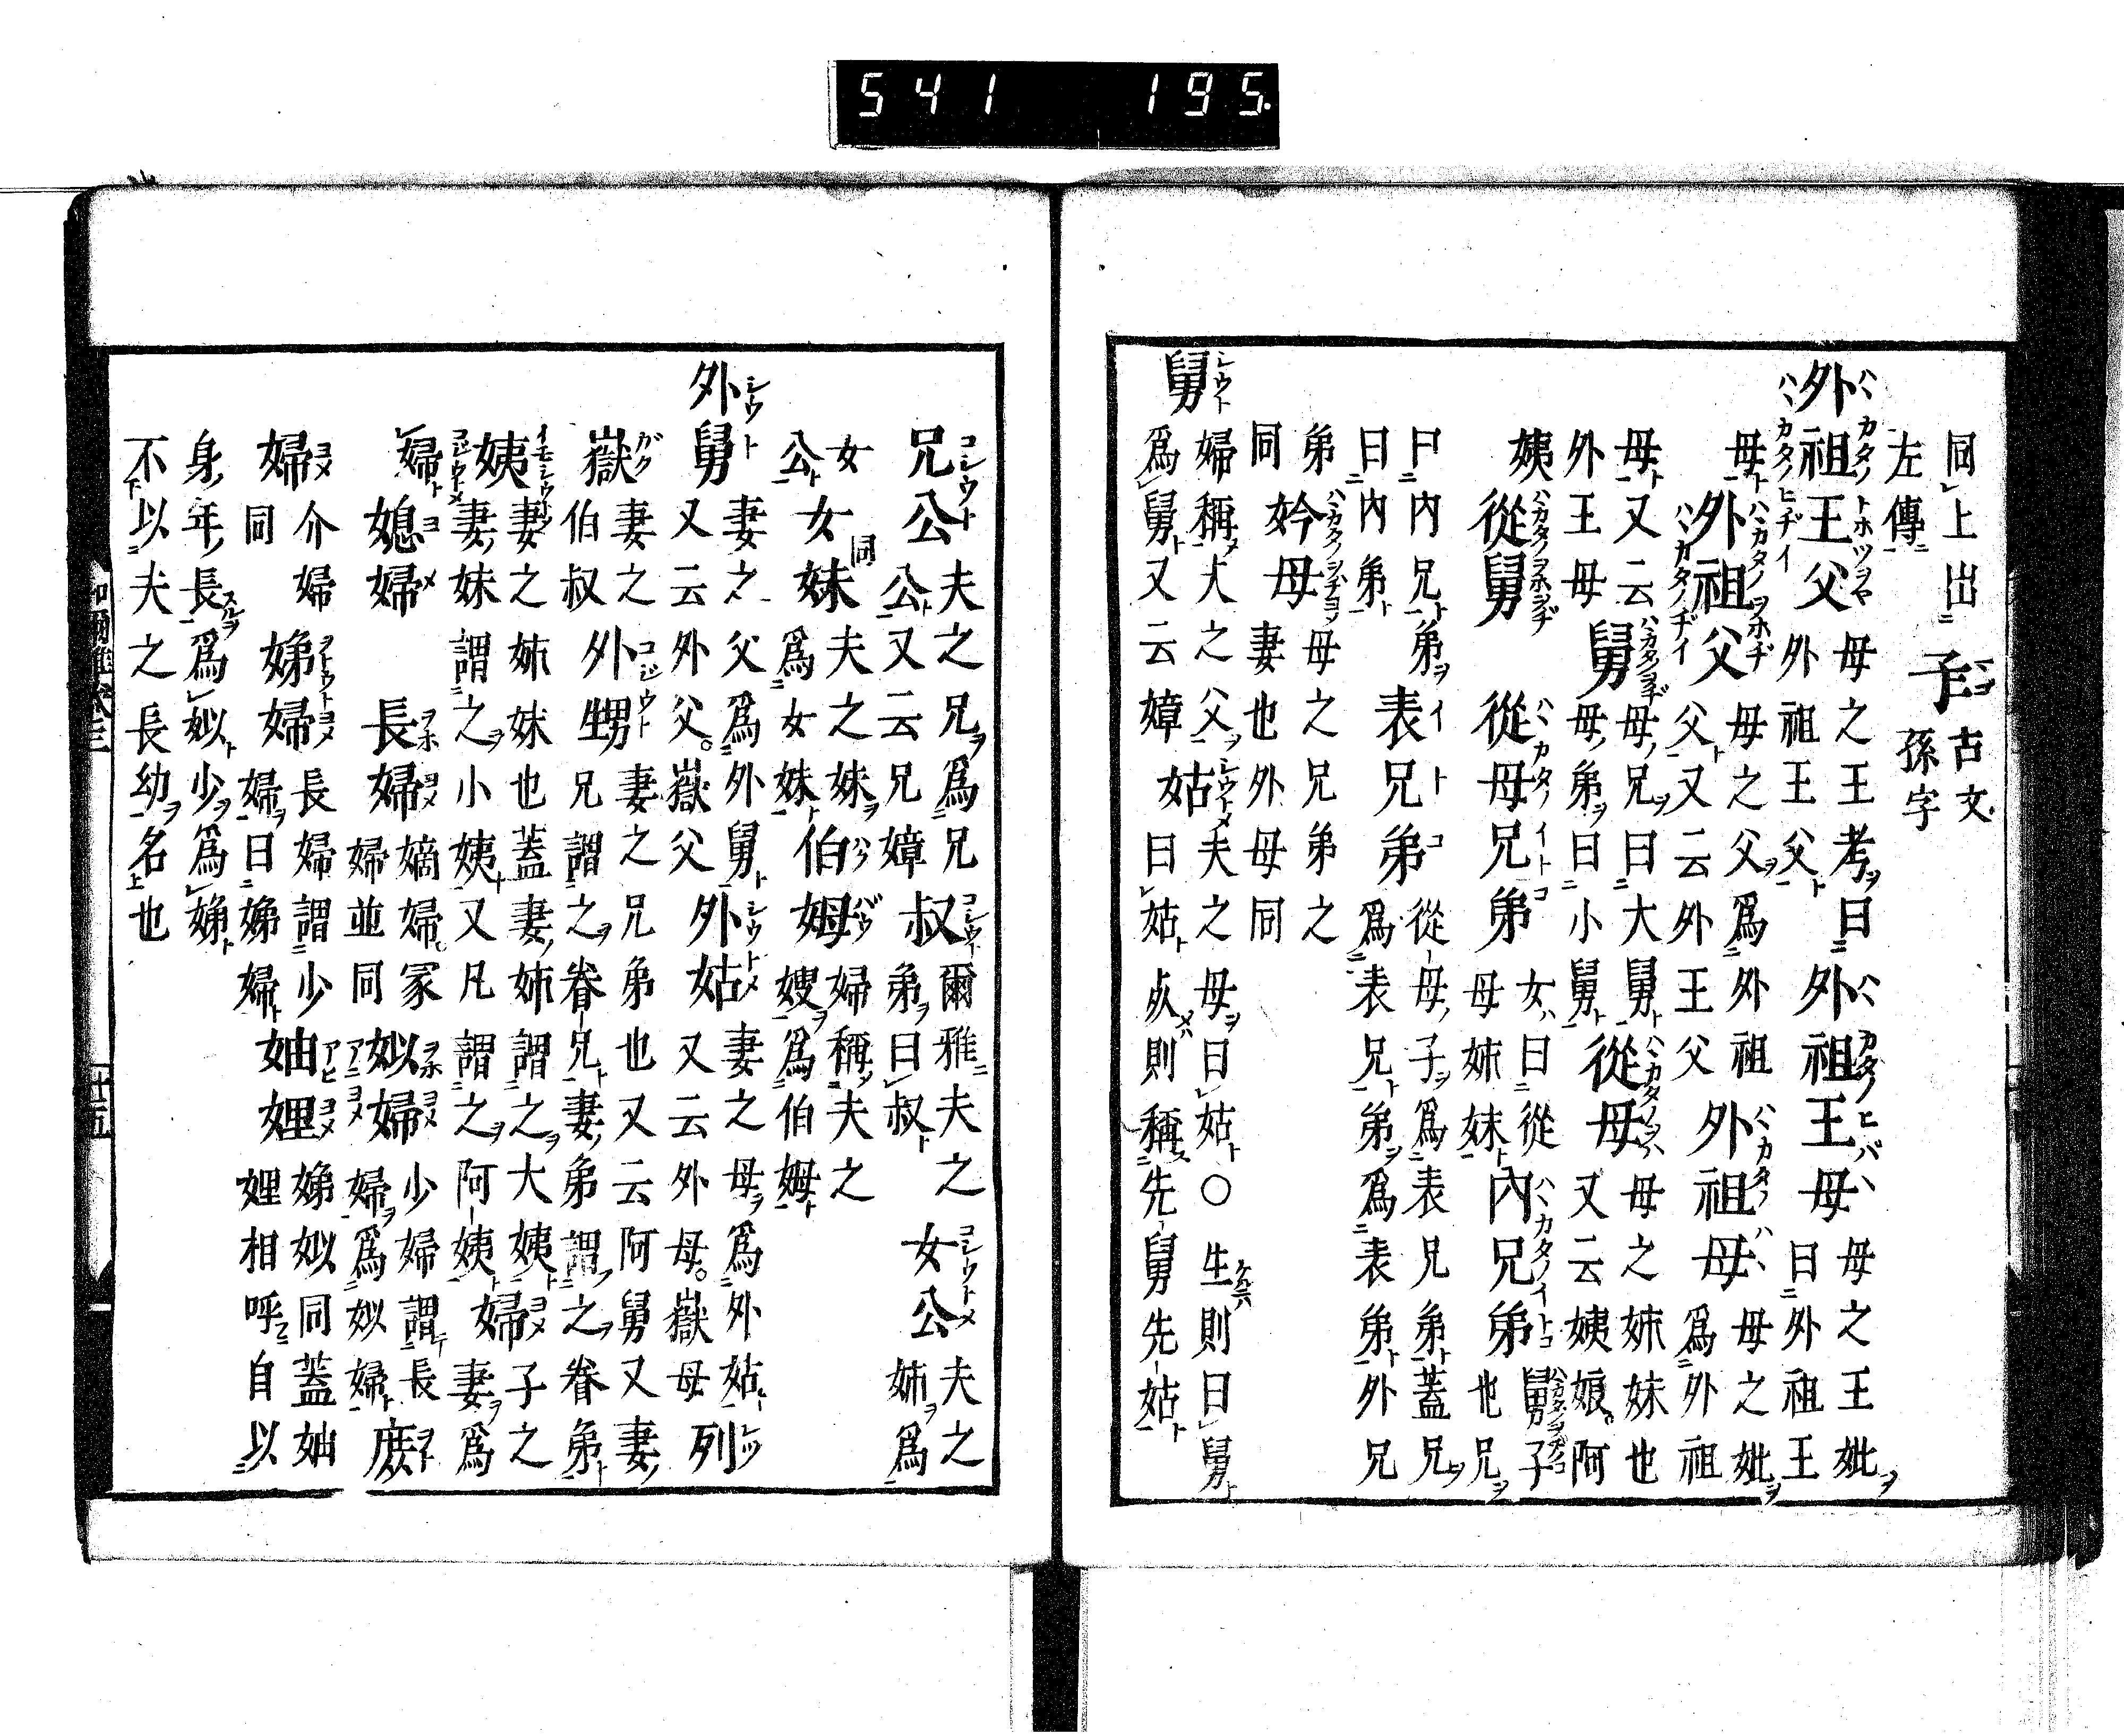 541 195.
同上出左傳 子 古文孫字
外祖王父 母之王考曰外祖王父 外祖王母 母之王妣曰外祖王
母 外祖父 母之父爲外祖父又云外王父 外祖母 母之妣爲外祖
母又云外王母 舅 母兄曰大舅母弟曰小舅 從母 母之姊妹也又云姨娘。阿
姨 從舅 從母兄弟 女曰從母姊妹 內兄弟 舅子也兄
曰內兄弟曰內弟 表兄弟 從母子爲表兄弟蓋兄爲表兄弟爲表弟外兄
弟同 妗母 母之兄弟之妻也外母同
舅 婦稱夫之父爲舅又云嫜 姑 夫之母曰姑○生則曰舅曰姑歿則稱先舅先姑
兄公 夫之兄爲兄公又云兄嫜 叔 爾雅夫之弟曰叔 女公 夫之姊爲
女公 女妹 同 夫之妹爲女妹 伯姆 婦稱夫之嫂爲伯姆
外舅 妻之父爲外舅又云外父。嶽父 外姑 妻之母爲外姑又云外母。嶽母 列
嶽 妻之伯叔 外甥 妻之兄弟也又云阿舅又妻兄謂之眷兄妻弟謂之眷弟
姨 妻之姊妹也蓋妻姊謂之大姨妻妹謂之小姨又凡謂之阿姨 婦 子之妻爲
婦 媳婦 長婦 嫡婦。冢婦並同 姒婦 少婦謂長婦爲姒婦 庶
婦 介婦同 娣婦 長婦謂少婦曰娣婦 妯娌 娣姒同蓋妯娌相呼自以
身年長爲姒少爲娣不以夫之長幼名也
和爾雅卷三 廿五